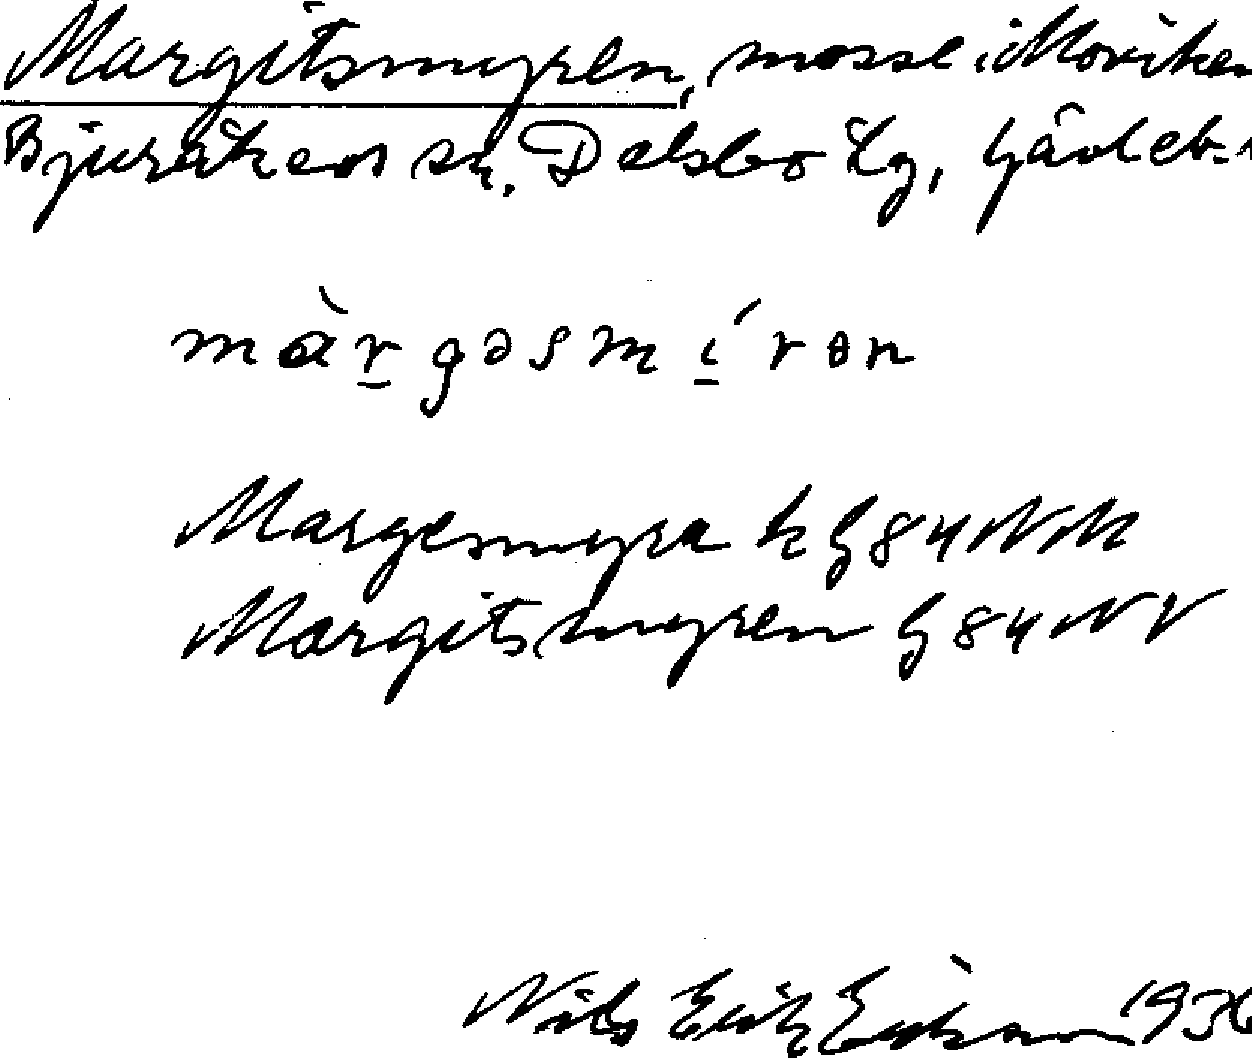 Margitsmyren, mosse i Moviken
Bjuråkers sn. Delsbo tg, Gävleb.
màrgəsmírɵn
Margesmyra k G 84 NM
Margitsmyren G 84 NV
Nils Erik 1936